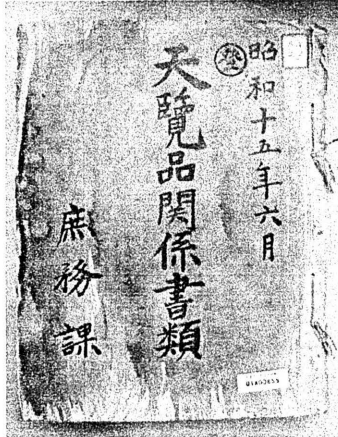 昭和十五年六月
天覽品関係書類
庶務課